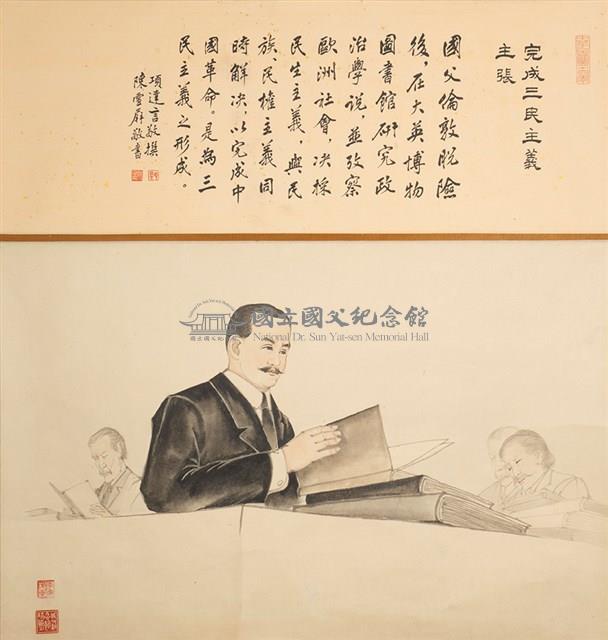 完成三民主義
主張
國父倫敦脫險
後，在大英博物
圖書館研究政
治學說，並攷察
歐洲社會，决採
民生主義，與民
族、民權主義同
時解决，以完成中
國革命。是為三
民主義之形成。
項達言敬撰
陳雪屏敬書
國立國父紀念館
National Dr. Sun Yat-sen Memorial Hall
國立國父紀念館